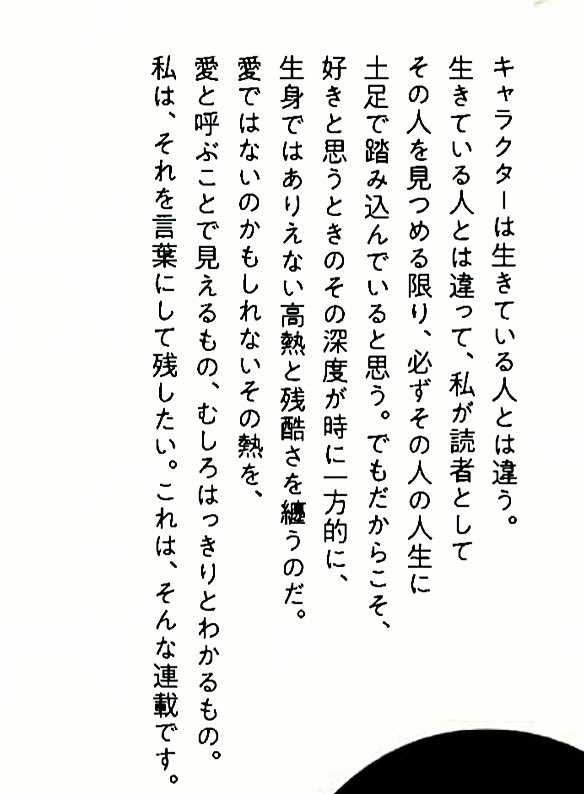 キャラクターは生きている人とは違う。
生きている人とは違って、私が読者として
その人を見つめる限り、必ずその人の人生に
土足で踏み込んでいると思う。でもだからこそ、
好きと思うときのその深度が時に一方的に、
生身ではありえない高熱と残酷さを纏うのだ。
愛ではないのかもしれないその熱を、
愛と呼ぶことで見えるもの、むしろはっきりとわかるもの。
私は、それを言葉にして残したい。これは、そんな連載です。